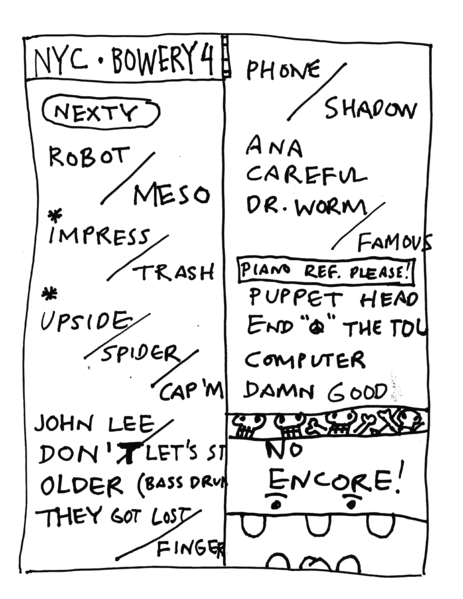 NYC · BOWERY 4
NEXTY
ROBOT/
MESO
*
IMPRESS/
TRASH
*
UPSIDE/
SPIDER/
CAP'M
JOHN LEE
DON'T LET'S ST
OLDER (BASS DRUM
THEY GOT LOST/
FINGER
PHONE/
SHADOW
ANA
CAREFUL
DR. WORM/
FAMOUS
PIANO REF. PLEASE!
PUPPET HEAD
END "☮" THE TOU
COMPUTER
DAMN GOOD
NO
ENCORE!